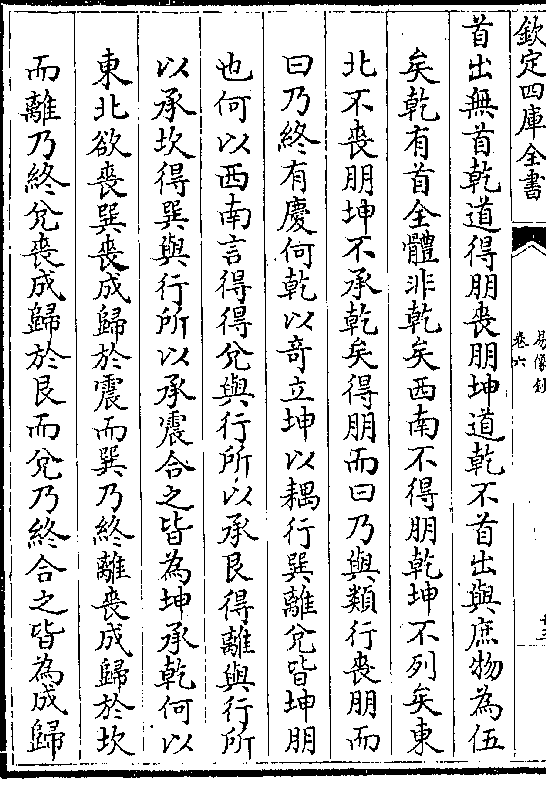 欽定四庫全書
易像鈔
卷六
十三
首出無首乾道得朋喪朋坤道乾不首出與庶物為伍
矣乾有首全體非乾矣西南不得朋乾坤不列矣東
北不喪朋坤不承乾矣得朋而曰乃與類行喪朋而
曰乃終有慶何乾以奇立坤以耦行巽離兌皆坤朋
也何以西南言得得兌與行所以承艮得離與行所
以承坎得巽與行所以承震合之皆為坤承乾何以
東北欲喪巽喪成歸於震而巽乃終離喪成歸於坎
而離乃終兌喪成歸於艮而兌乃終合之皆為成歸